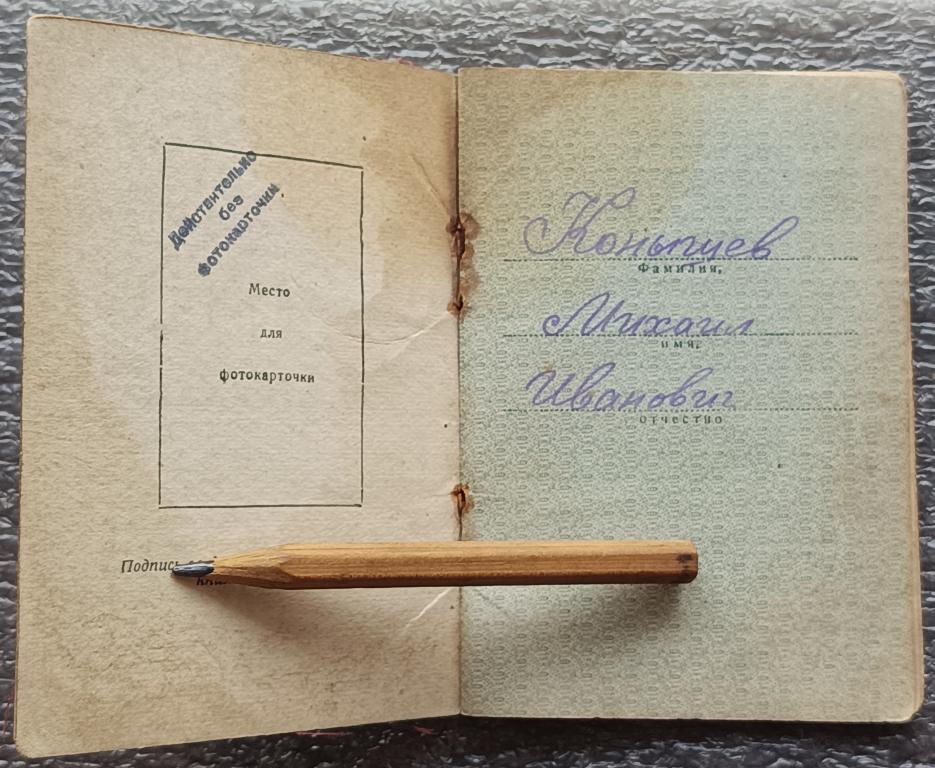 Действительно
без
фотокарточки
Место
для
фотокарточки
Подпись
Копытцев
Фамилия,
Михаил
имя,
Иванович
отчество